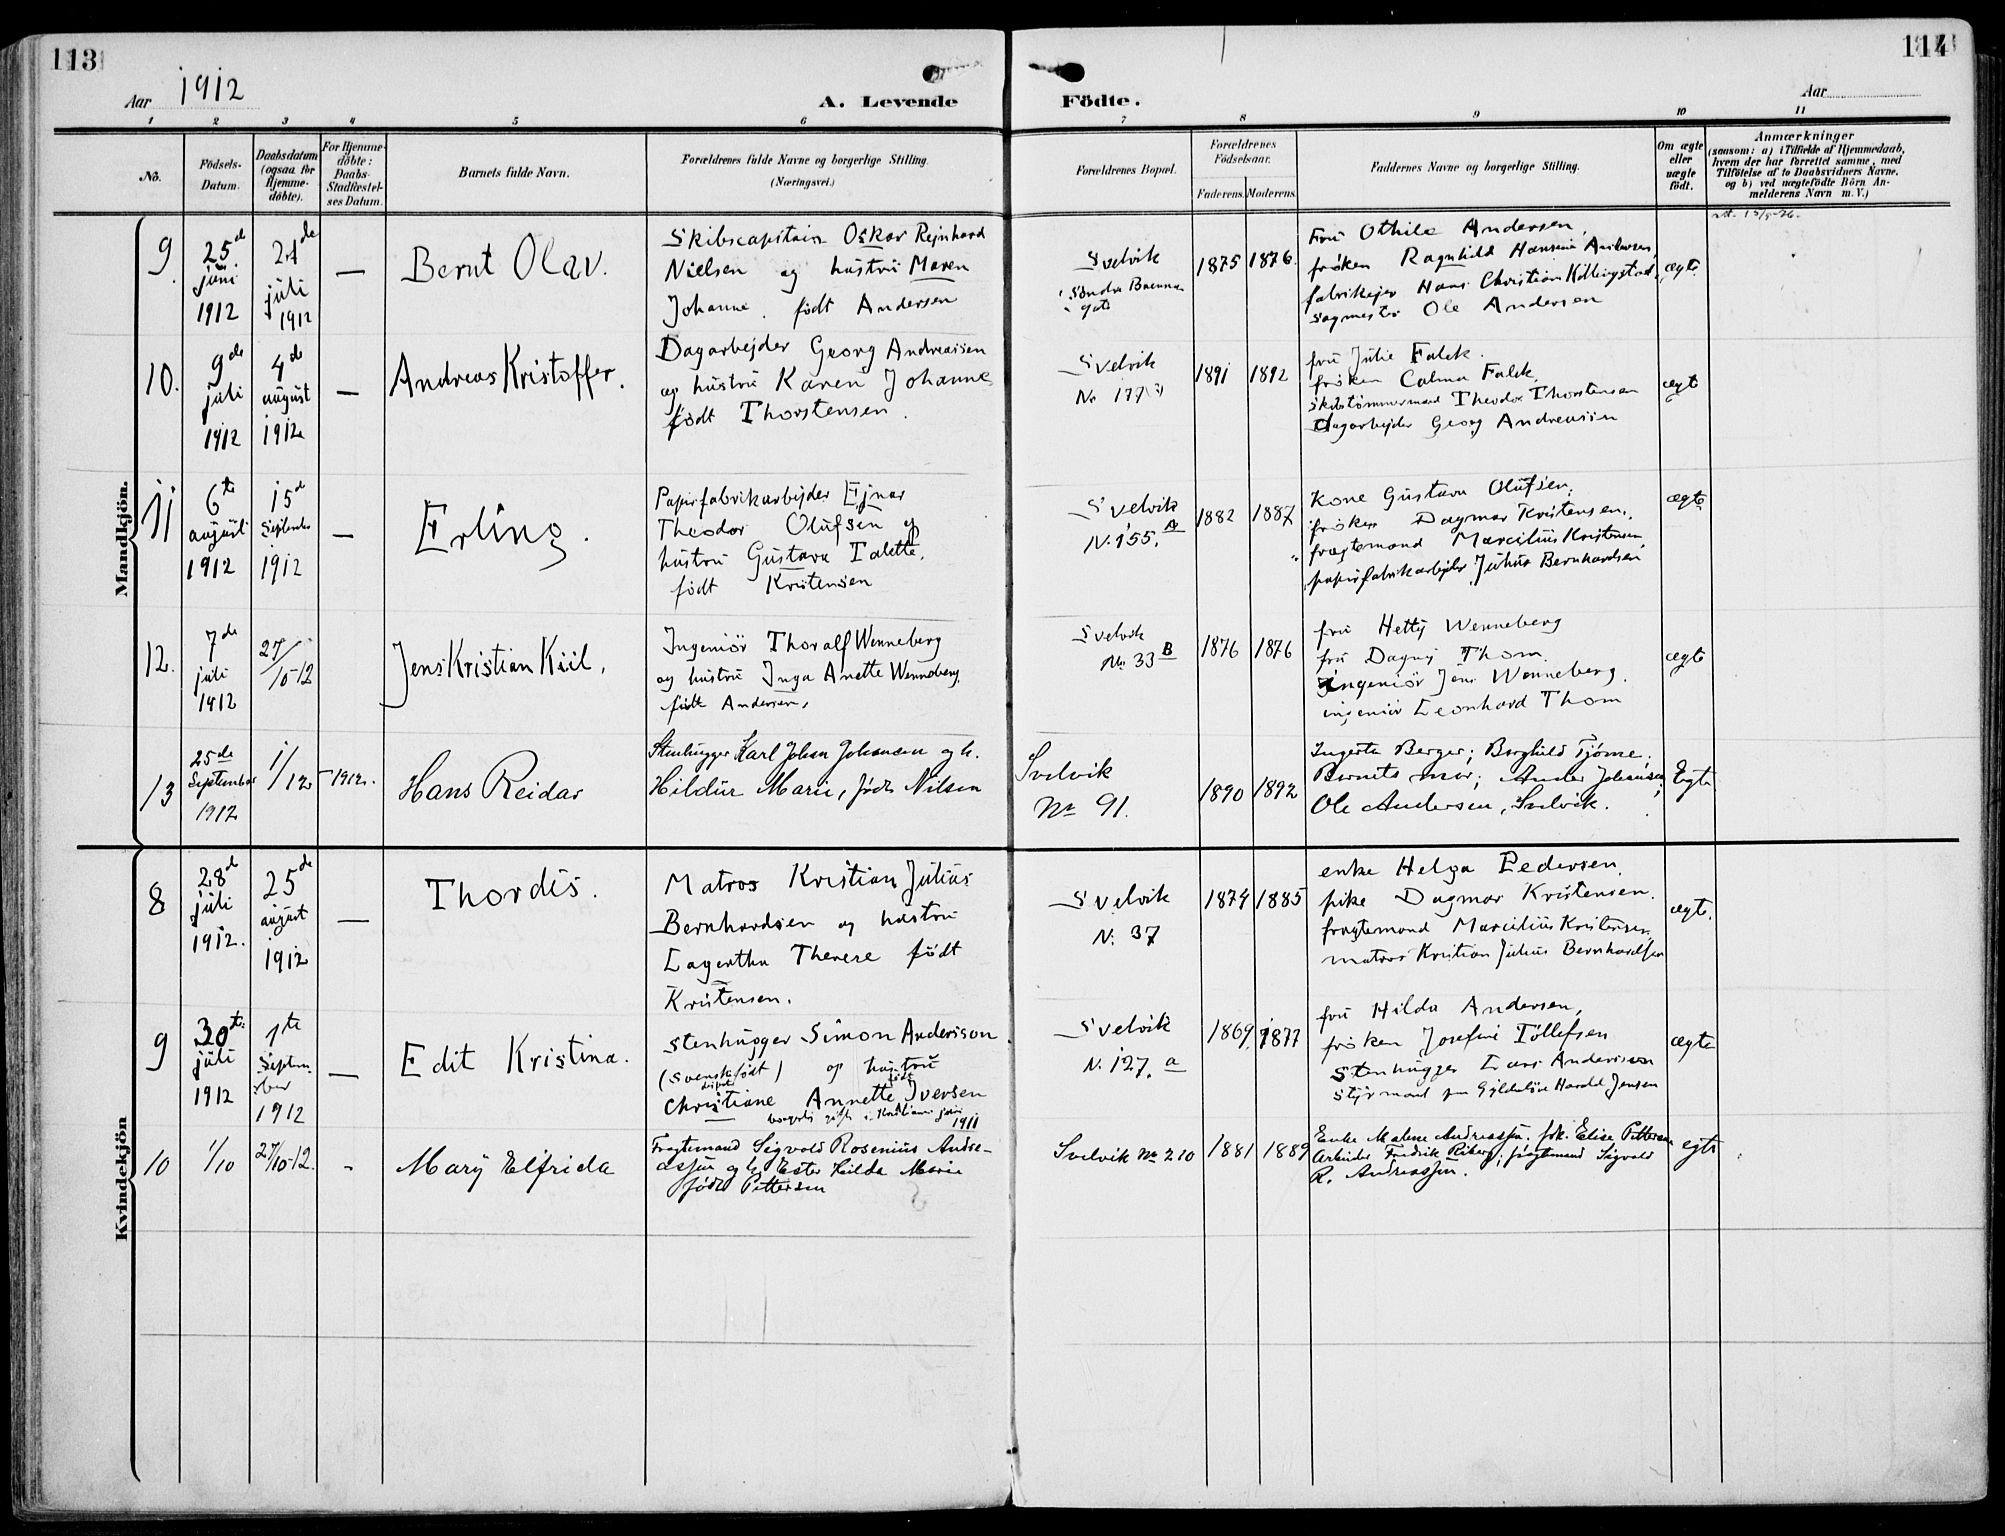 113
Aar 1912
A. Levende
Födte.
114
Aar
1 2 3 4 5 6 7 8 9 10 11
No.
Födsels-
Datum.
Daabsdatum
(ogsaa for
Hjemme-
döbte).
For Hjemme-
döbte:
Daabs-
Stadfæstel-
ses Datum.
Barnets fulde Navn.
Forældrenes fulde Navne og borgerlige Stilling.
(Næringsvei.)
Forældrenes Bopæl.
Forældrenes
Födselsaar.
Faderens. Moderens.
Faddernes Navne og borgerlige Stilling.
Om ægte
eller
uægte
födt.
Anmærkninger
(saasom: a) i Tilfælde af Hjemmedaab,
hvem der har forrettet samme, med
Tilföielse af to Daabsvidners Navne,
og b) ved uægtefödte Börn An-
melderens Navn m. V.)
Mandkjön.
9.
25 d
juni
1912
21 de
juli
1912
—
Bernt Olav.
Skibscaptain Oskar Rejnhard
Nielsen og hustru Maren
Johanne. født Andersen
Svelvik
Søndre
gate
1875
1876.
Fru Othile Andersen,
frøken Ragnhild Hansine Andersen
fabrikejer Hans Christian Killingstad
sagmester Ole Andersen
ægte
att. 15/5-26.
10.
9 de
juli
1912
4 de
august
1912
—
Andreas Kristoffer.
Dagarbejder Georg Andreassen
og hustru Karen Johanne
født Thorstensen.
Svelvik
No 177
1891
1892
fru Julie Falck.
frøken Calma Falck,
skibstømmermand Theodor Thorstensen
Dagarbejder Georg Andreassen
ægte
11
6 te
august
1912
15 d
September
1912
—
Erling.
Papirfabrikarbejder Ejnar
Theodor Olufsen og
hustru Gustava Talette,
født Kristensen
Svelvik
N. 155. A
1882
1887
Kone Gustava Olufsen,
frøken Dagmar Kristensen,
fragtemand Marcilius Kristensen
papirfabrikarbejder Julius Bernhardsen
ægte
12.
7 de
juli
1912
27/10-12
Jens Kristian Kiil.
Ingeniør Thoralf Wenneberg
og hustru Inga Anette Wenneberg,
født Andersen.
Svelvik
No. 33 B
1876
1876
fru Hetty Wenneberg
fru Dagny Thom.
ingeniør Jens Wenneberg.
ingeniør Leonhard Thom
ægte
13
25 de
September
1912
1/12 - 1912.
Hans Reidar
Stenhugger Karl Johan Johansen og h.
Hildur Marie, født Nilsen
Svelvik
No 91.
1890
1892
Ingerta Berger; Borghild Tjøme;
Barnets mor; Anders Johansen;
Ole Andersen, Svelvik.
Egte
Kvindekjön
8
28 d
juli
1912.
25 de
august
1912
—
Thordis.
Matros Kristian Julius
Bernhardsen og hustru
Lagertha Therese født
Kristensen.
Svelvik
N. 37
1874
1885
enke Helga Pedersen.
pike Dagmar Kristensen.
fragtemand Marcilius Kristensen,
matros Kristian Julius Bernhardsen
ægte.
9
30 te
juli
1912
1 te
Septem-
ber
1912
—
Edit Kristina.
Stenhugger Simon Andersson
(svenskfødt) og hustru
Christiane Annette Iversen
borgerlig gift i Kristiania juni
1911
Svelvik
N. 127. a
1869
1877
fru Hilda Andersen,
frøken Josefine Tollefsen
Stenhugger Lars Andersson
Styrmand Harald Jensen
ægte
10
1/10
27/10-12.
-
Mary Elfrida
Fragtemand Sigvald Rosenius Andre-
assen og h. Ester Hilda Marie
født Pettersen
Svelvik No 210
1881
1889
Enke Malene Andreassen, frk. Elise Pettersen
Arbeider Fredrik Riberg; fragtemand Sigvald
R. Andreassen.
egte